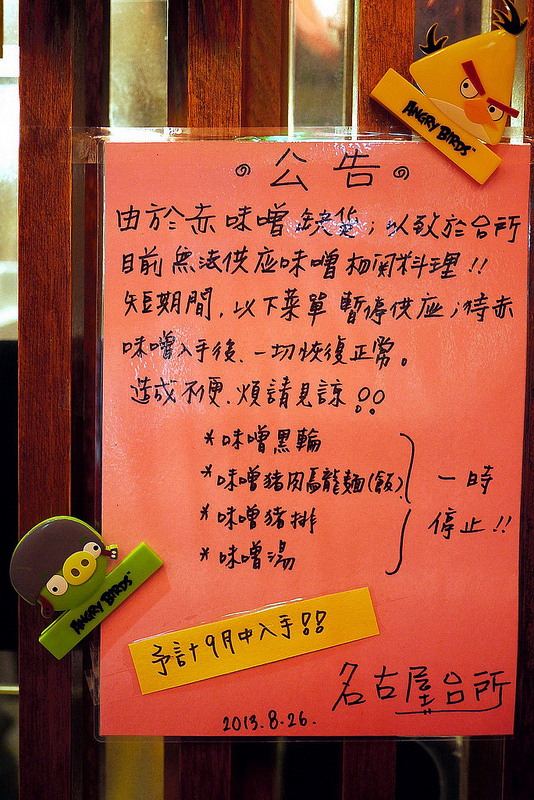 ANGRY BIRDS™
公告
由於赤味噌缺貨;以致於台所
目前無法供应味噌相関料理!!
短期間,以下菜單暫停供应;待赤
味噌入手後、一切恢復正常。
造成不便、煩請見諒!!
*味噌黑輪
*味噌豬肉烏龍麵(飯)
*味噌豬排
*味噌湯
一時
停止!!
ANGRY BIRDS™
予計9月中入手!!
名古屋台所
2013.8.26.